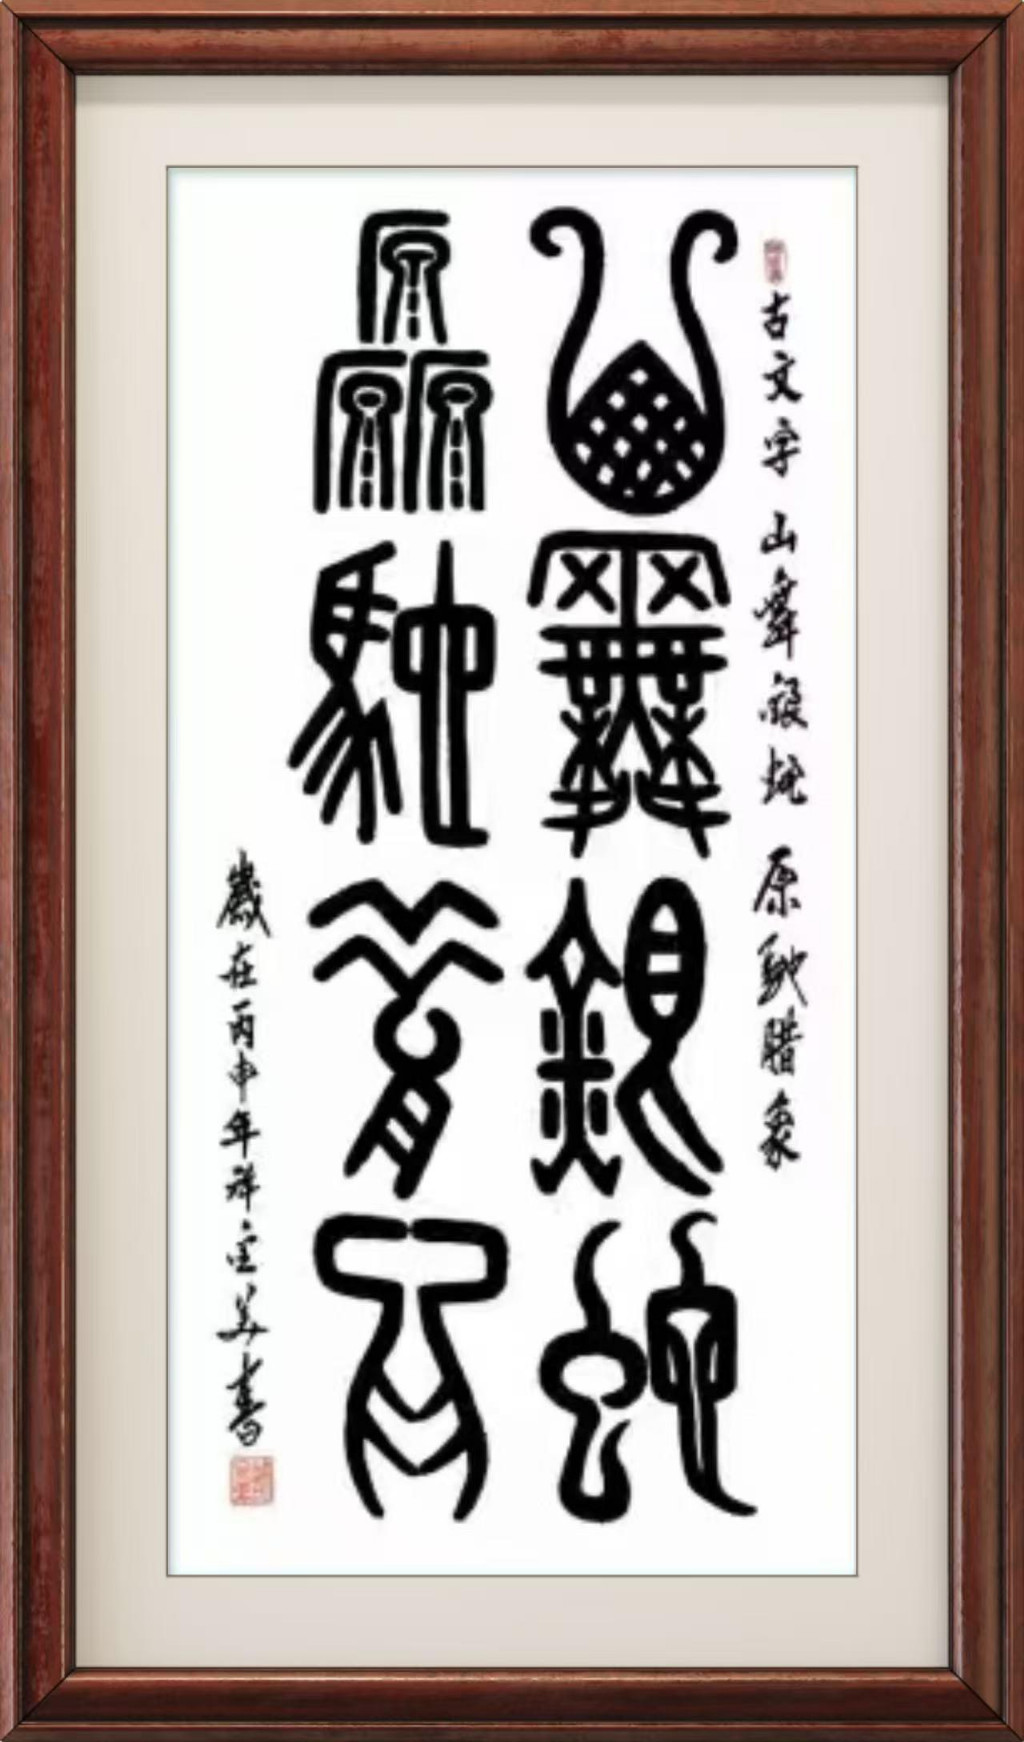 古文字 山舞银蛇 原驰腊象
山舞銀蛇
原馳腊象
歲在丙申年祥云美書